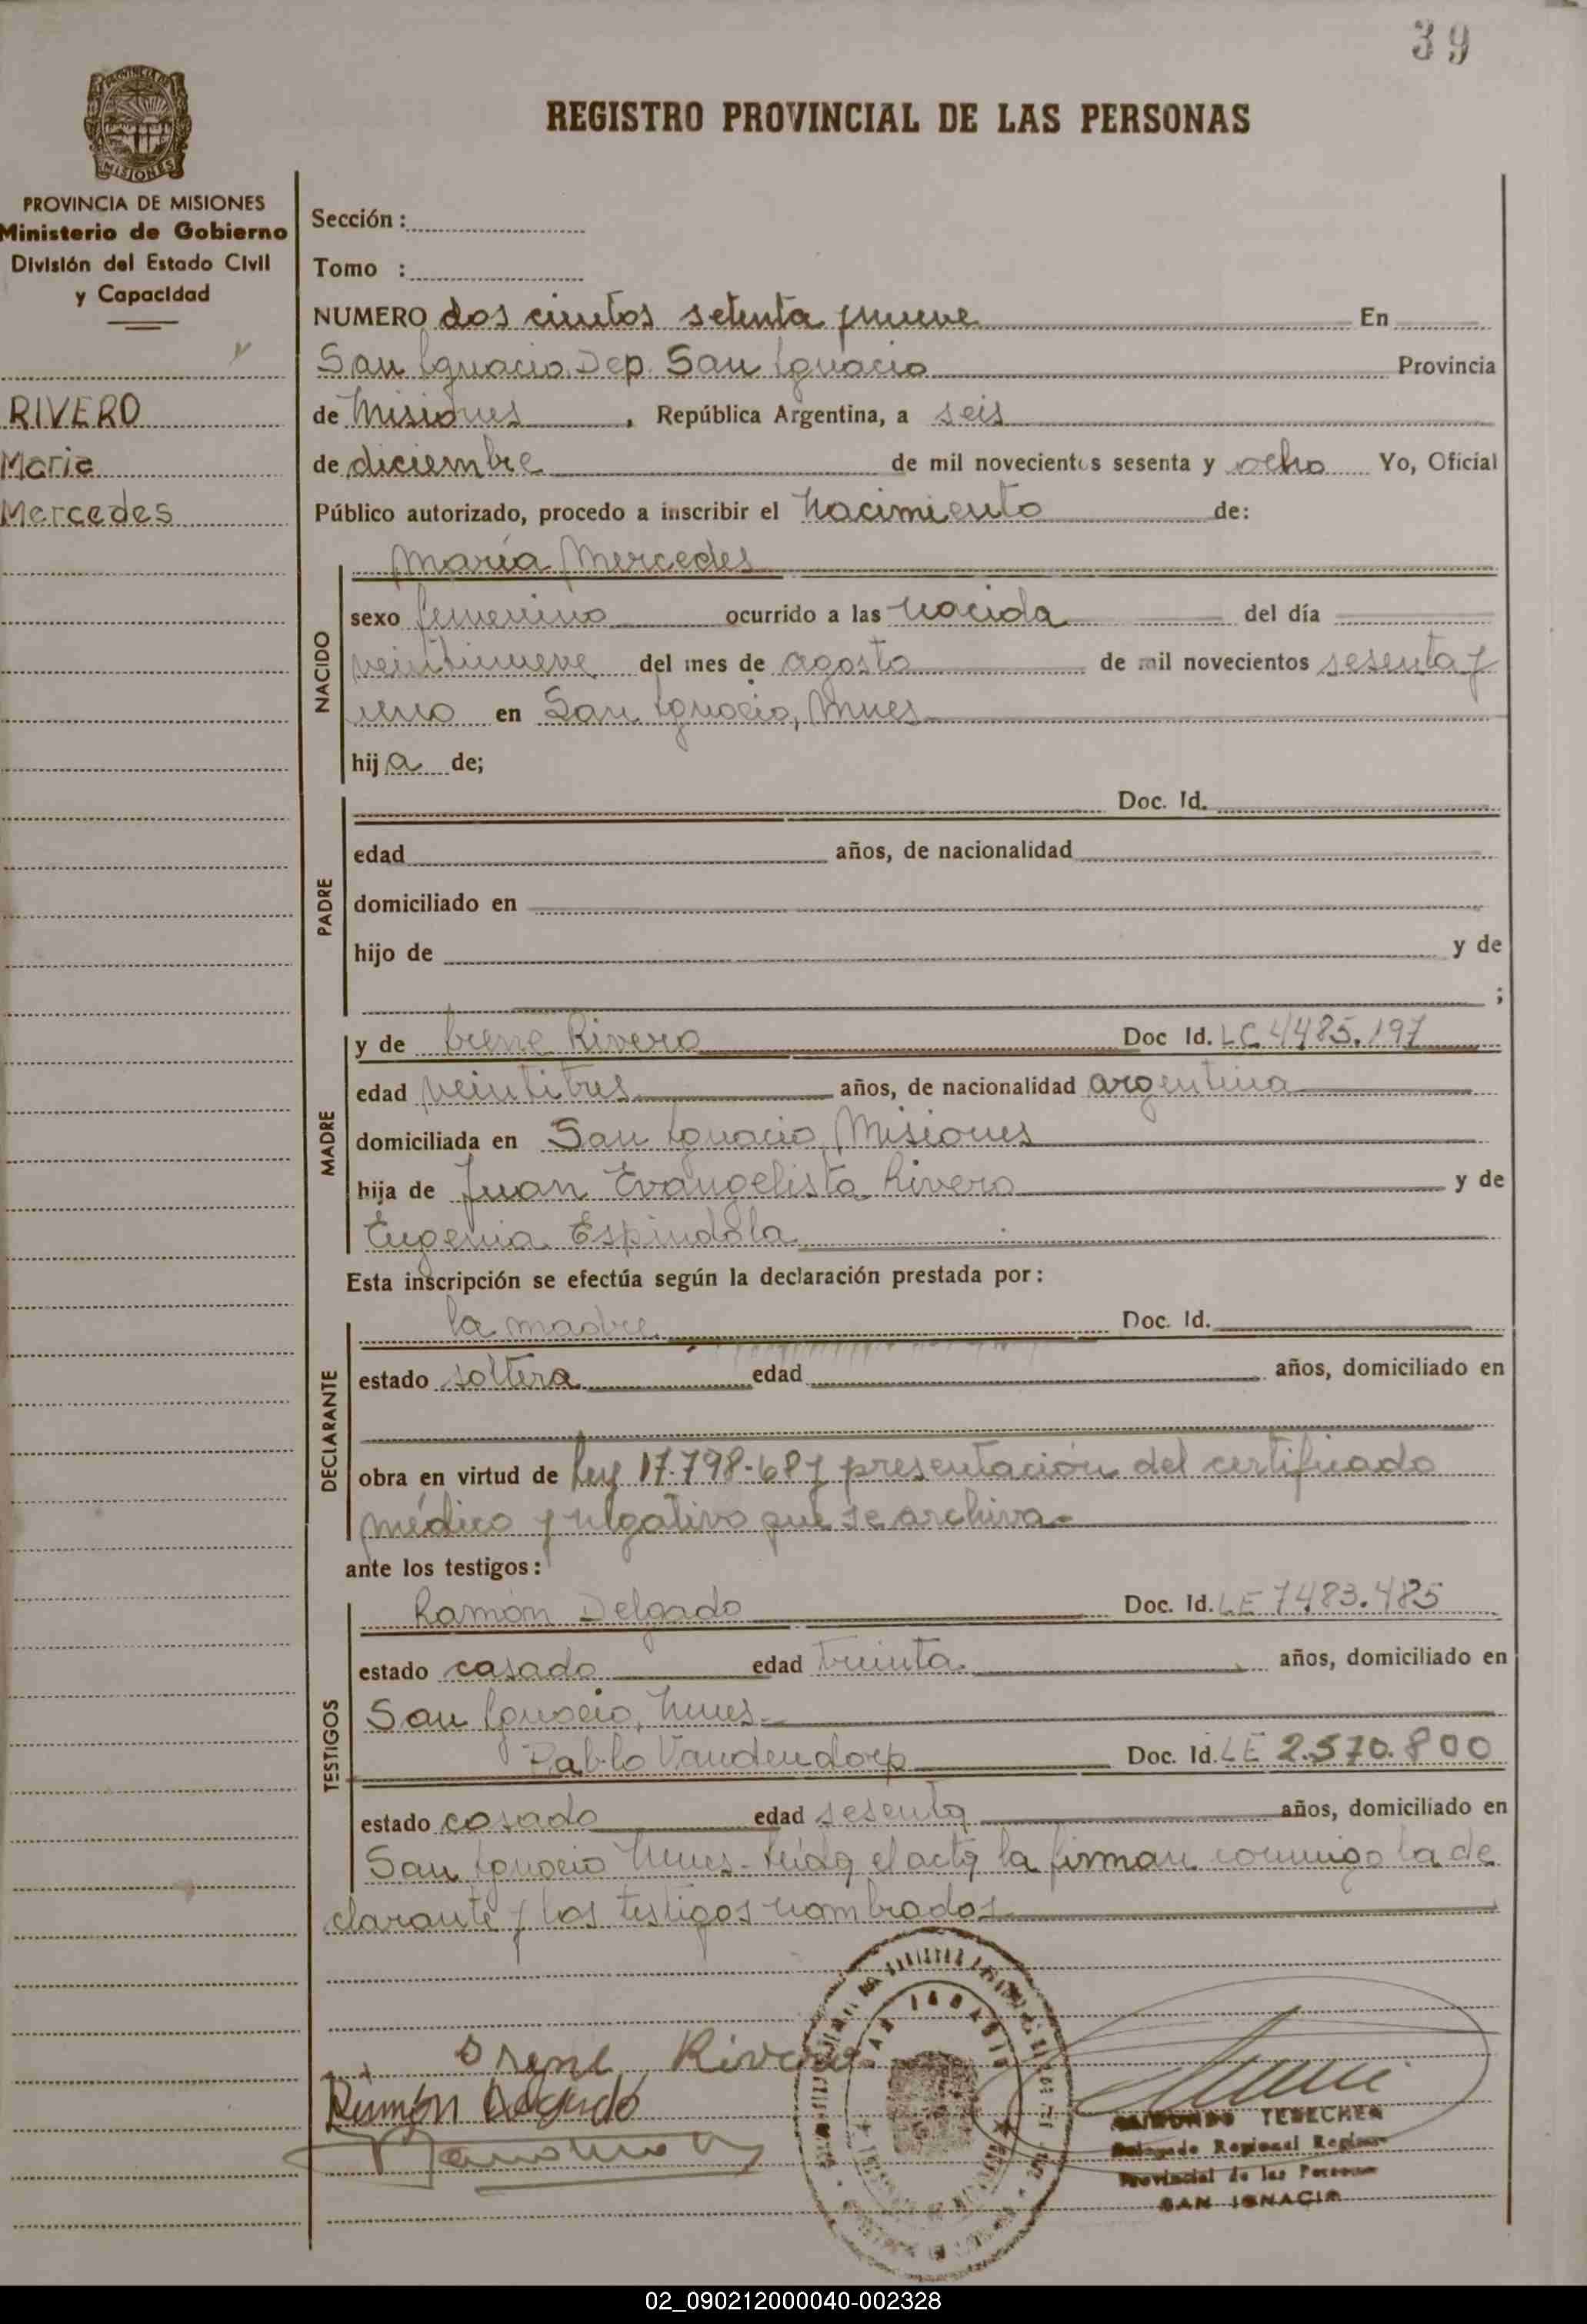 39
PROVINCIA DE
MISIONES
PROVINCIA DE MISIONES
Ministerio de Gobierno
División del Estado Civil
y Capacidad
RIVERO
Maria
Mercedes
REGISTRO PROVINCIAL DE LAS PERSONAS
Sección :
Tomo :
NUMERO dos cientos setenta y nueve En
San Ignacio Dep. San Ignacio Provincia
de Misiones, República Argentina, a seis
de diciembre de mil novecientos sesenta y ocho Yo, Oficial
Público autorizado, procedo a inscribir el Nacimiento de:
NACIDO
María Mercedes
sexo femenino ocurrido a las nacida del día
veintinueve del mes de agosto de mil novecientos sesenta y
uno en San Ignacio, Mnes
hija de;
PADRE
Doc. Id.
edad años, de nacionalidad
domiciliado en
hijo de y de
;
MADRE
y de Irene Rivero Doc Id. LC 4485.197
edad veintitres años, de nacionalidad argentina
domiciliada en San Ignacio, Misiones
hija de Juan Evangelista Rivero y de
Eugenia Espindola
Esta inscripción se efectúa según la declaración prestada por:
DECLARANTE
la madre Doc. Id.
estado soltera edad años, domiciliado en
obra en virtud de Ley 17.798-68 y presentación del certificado
médico y negativo que se archiva.-
ante los testigos:
TESTIGOS
Ramón Delgado Doc. Id. LE 7483.485
estado casado edad treinta años, domiciliado en
San Ignacio, Mnes.-
Pablo Vandendorp Doc. Id. LE 2.570.800
estado casado edad sesenta años, domiciliado en
San Ignacio Mnes- Leída el acta la firman conmigo la de
clarante y los testigos nombrados.
Irene Rivero
Ramón Delgado
SAN IGNACIO
RAIMUNDO TESECHEA
Delegado Regional Registro
Provincial de las Personas
SAN IGNACIO
02_090212000040-002328